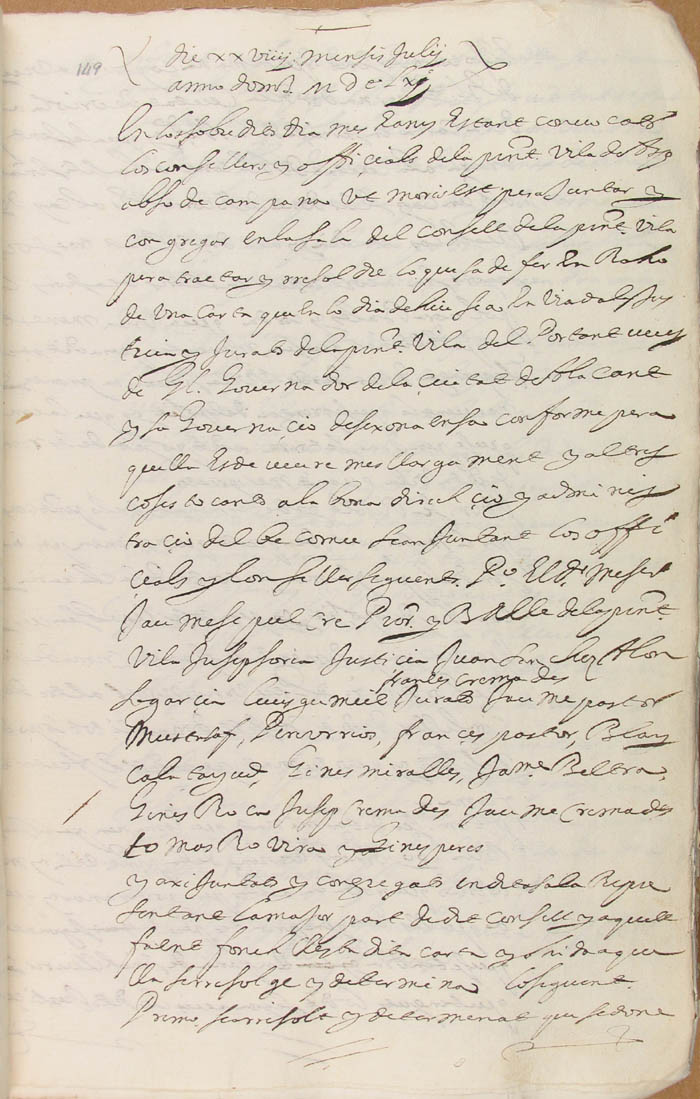 149
die xxviiij mensis Julij
anno domi. M de Lxj
En los sobredits dia mes E any Estant convocats
los consellers y officials de la pnt. vila de Asp
ab so de campana ut moris est pera Juntar y
congregar en la sala del consell de la pnt. vila
pera tractar y resoldre lo que sa de fer En Raho
de una carta que En lo dia de hui sea Enviada als Jus
ticia y Jurats de la pnt. Vila del Portant veus
de Gl. Governador de la çiutat de Alacant
y sa Governacio de sexona ensa conforme per a
quella Es de veure mes llargament y altres
coses tocants a la bona direcçio y adminis
traçio del be comu se an Juntat los offi
çials y consellers seguents. Po. El Dr. Meser
Jaume sepulcre Pror. y Balle de la pnt.
Vila Jusep soria Justicia Juan sanchez Alon
so garcia Luis gumiel frances cremades Jurats Jaume pastor
Mustasaf, frances pastor, Blay
calatayud, Gines miralles, Jame. Beltra,
Gines Roca Jusep Cremades Jaume Cremades
tomas Rovira y Gines peres
y axi Juntats y congregats en dita sala Repre
sentant la major part de dit consell y aquell
fahent fonch llesta dita carta y ohida aque
lla se resolge y determina lo seguent.
Primo se a resolt y determenat que se done